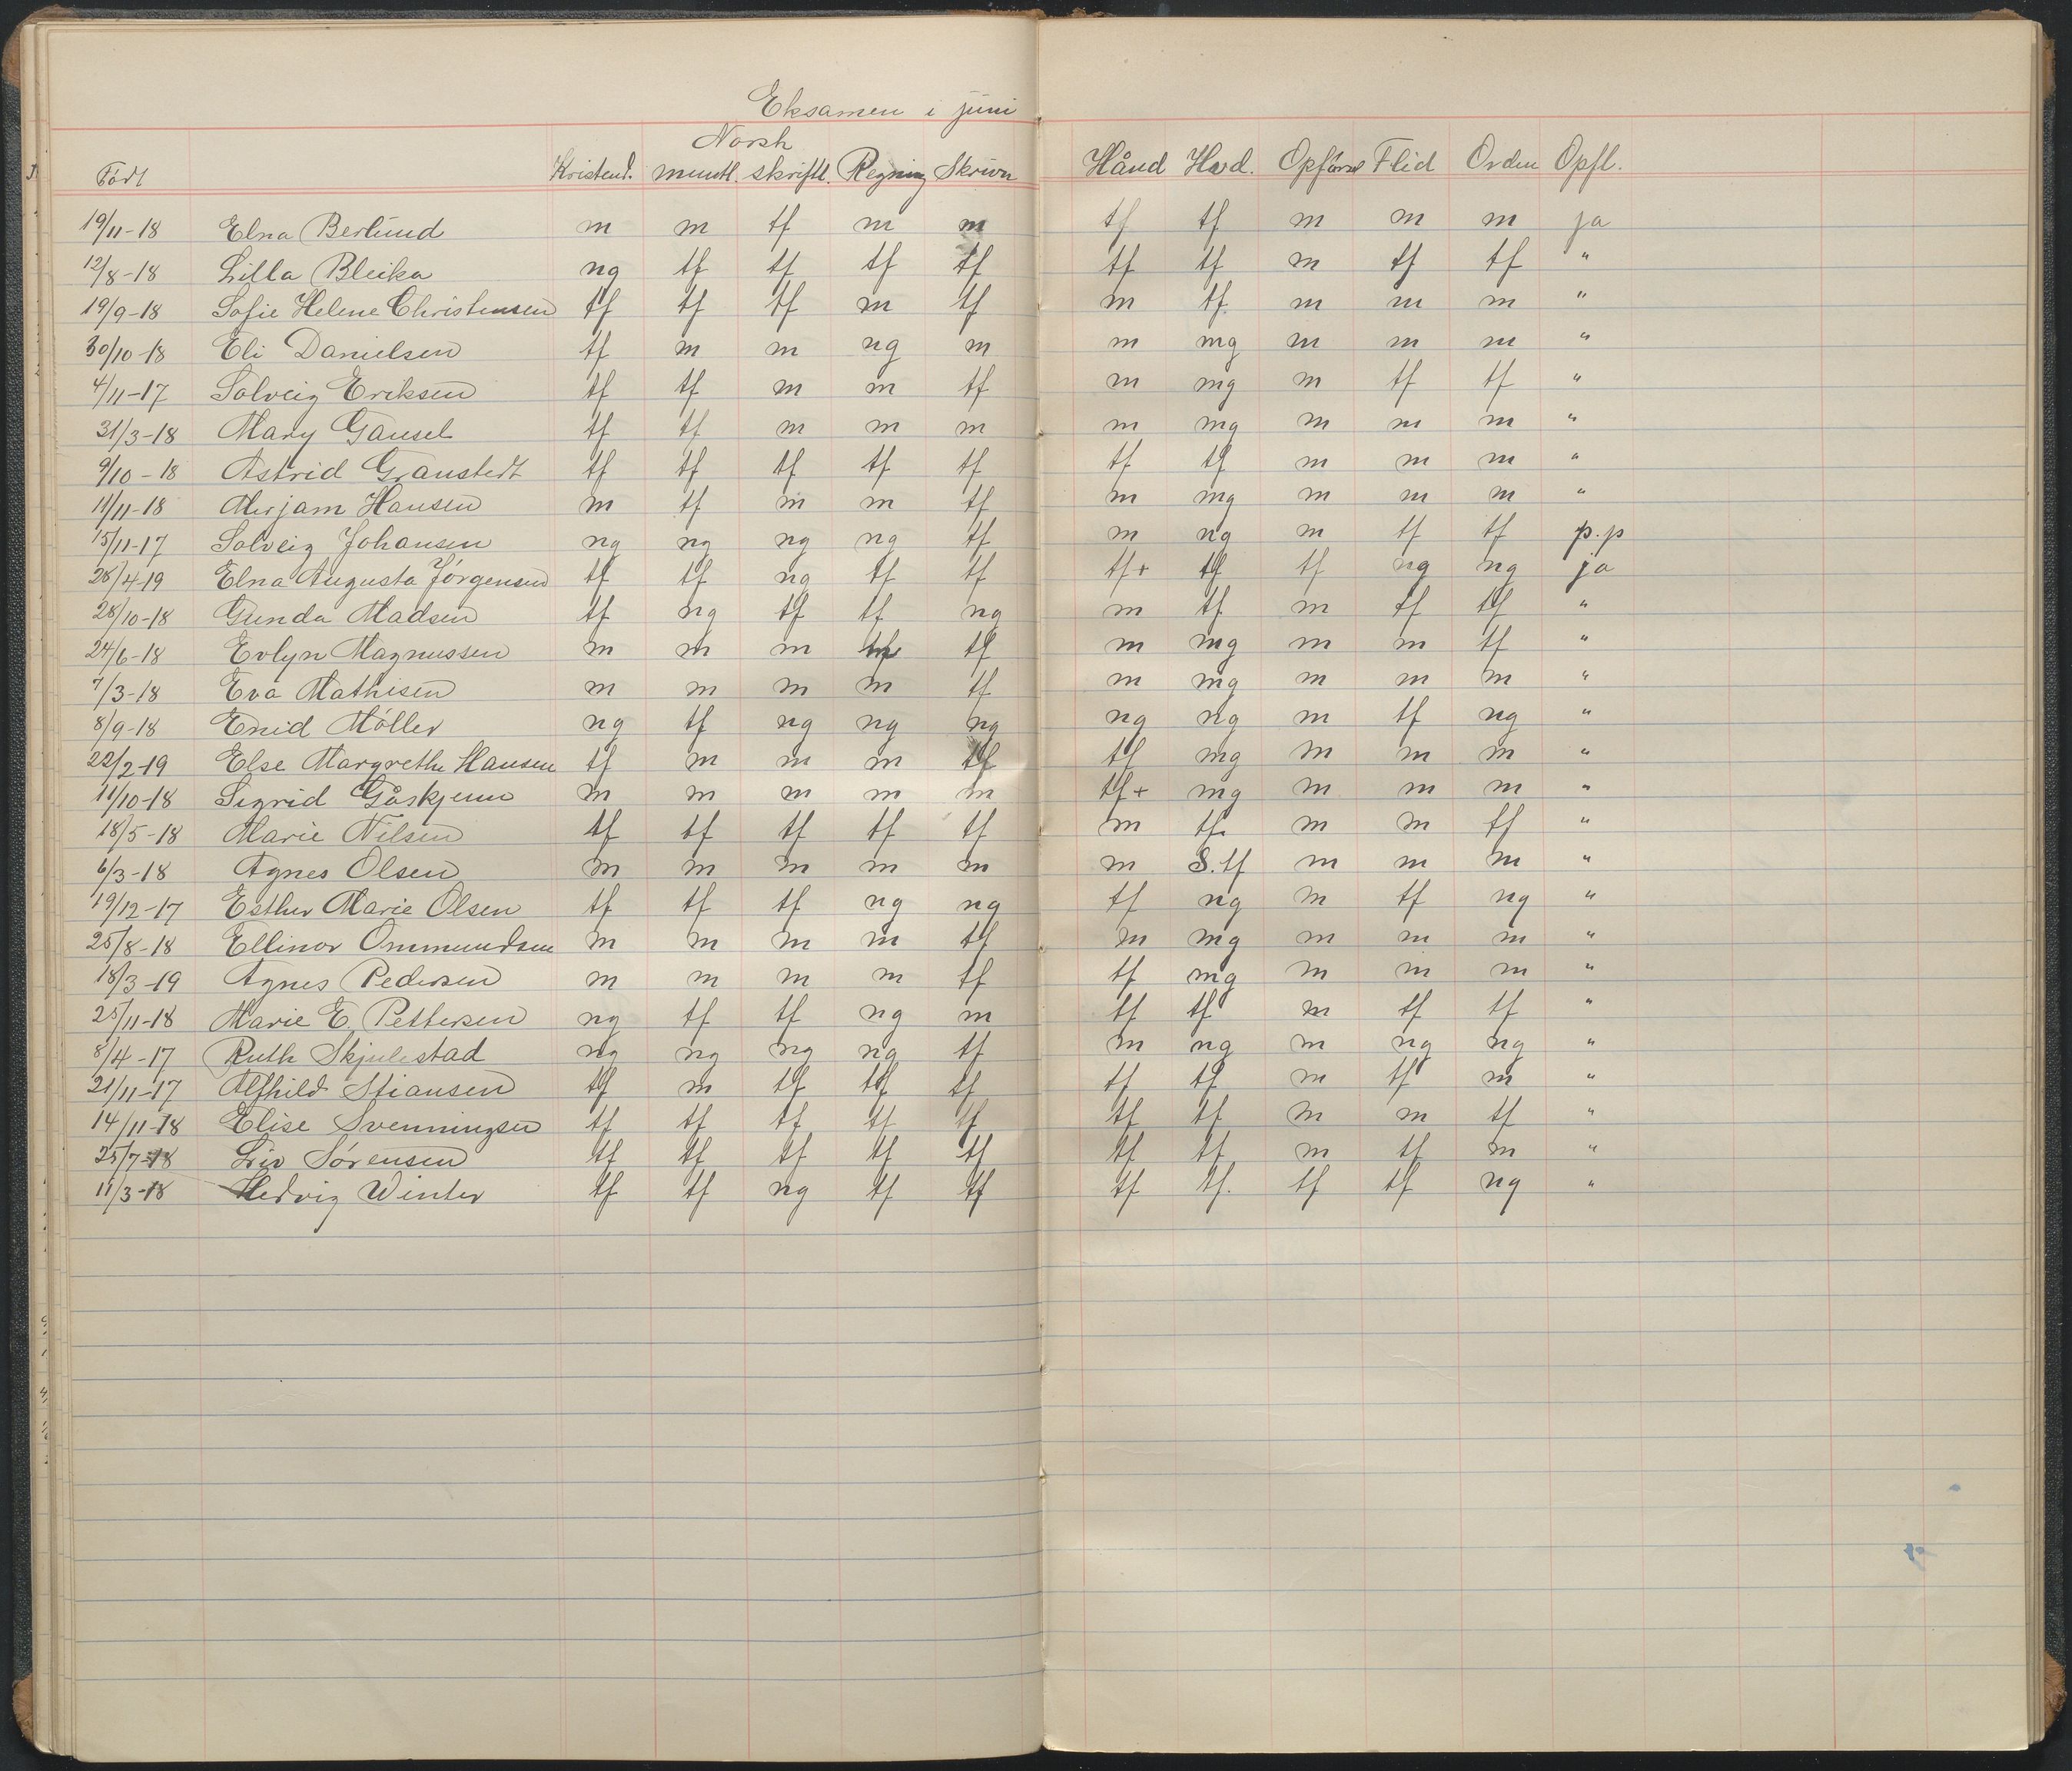 Eksamen i juni
Norsk
Født Kristend. muntl. skriftl. Regning Skrivn Hånd Hovd. Opførsel Flid Orden Opfl.
19/11-18 Elna Berlund m m tf m m tf tf m m m ja
12/8-18 Lilla Bleika ng tf tf tf tf tf tf m tf tf "
19/9-18 Sofie Helene Christensen tf tf tf m tf m tf. m m m "
30/10-18 Eli Danielsen tf m m ng m m mg m m m "
4/11-17 Solveig Eriksen tf tf m m tf m mg m tf tf "
31/3-18 Mary Gausel tf tf m m m m mg m m m "
9/10-18 Astrid Granstedt tf tf tf tf tf tf tf m m m "
11/11-18 Mirjam Hansen m tf m m tf m mg m m m "
15/11-17 Solveig Johansen ng ng ng ng tf m ng m tf tf p.p
28/4-19 Elna Augusta Jörgensen tf tf ng tf tf tf+ tf tf ng ng ja
28/10-18 Gunda Madsen tf ng tf tf ng m tf m tf tf "
24/6-18 Evlyn Magnussen m m m tf m mg m m tf "
7/3-18 Eva Mathisen m m m m tf m mg m m m "
8/9-18 Enid Möller ng tf ng ng ng ng ng m tf ng "
22/2-19 Else Margrethe Hansen tf m m m tf tf mg m m m "
11/10-18 Sigrid Gåskjenn m m m m m tf+ mg m m m "
18/5-18 Marie Nilsen tf tf tf tf tf m tf. m m tf "
6/3-18 Agnes Olsen m m m m m m S.tf m m m "
19/12-17 Esther Marie Olsen tf tf tf ng ng tf ng m tf ng "
25/8-18 Ellinor Ommundsen m m m m tf m mg m m m "
18/3-19 Agnes Pedersen m m m m tf tf mg m m m "
25/11-18 Marie E. Pettersen ng tf tf ng m tf tf m tf tf "
8/4-17 Ruth Skjulestad ng ng ng ng tf m ng m ng ng "
21/11-17 Alfhild Stiansen tf m tf tf tf tf tf m tf m "
14/11-18 Elise Svenningsen tf tf tf tf tf tf tf m m tf "
25/7-18 Liv Sörensen tf tf tf tf tf tf tf m tf m "
11/3-18 Hedvig Winter tf tf ng tf tf tf tf. tf tf ng "